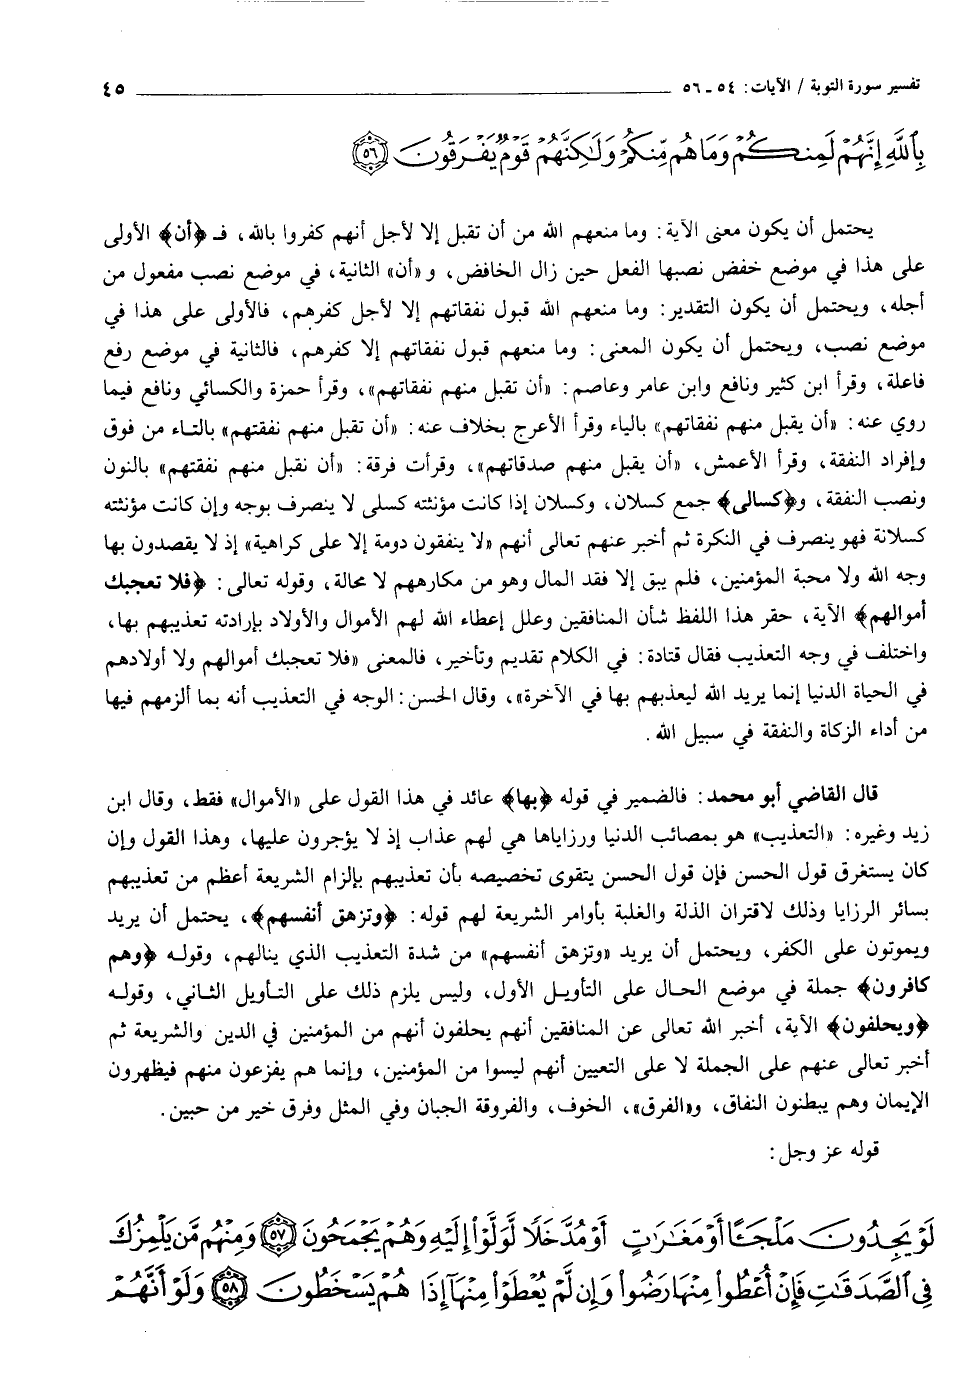 تفسير سورة التوبة / الآيات: ٥٤ ـ ٥٦ ٤٥
بِاللَّهِ إِنَّهُمْ لَمِنكُمْ وَمَا هُم مِّنكُمْ وَلَٰكِنَّهُمْ قَوْمٌ يَفْرَقُونَ ٥٦
يحتمل أن يكون معنى الآية: وما منعهم الله من أن تقبل إلا لأجل أنهم كفروا بالله، فـ ﴿أن﴾ الأولى
على هذا في موضع خفض نصبها الفعل حين زال الخافض، و «أن» الثانية، في موضع نصب مفعول من
أجله، ويحتمل أن يكون التقدير: وما منعهم الله قبول نفقاتهم إلا لأجل كفرهم، فالأولى على هذا في
موضع نصب، ويحتمل أن يكون المعنى: وما منعهم قبول نفقاتهم إلا كفرهم، فالثانية في موضع رفع
فاعلة، وقرأ ابن كثير ونافع وابن عامر وعاصم: «أن تقبل منهم نفقاتهم»، وقرأ حمزة والكسائي ونافع فيما
روي عنه: «أن يقبل منهم نفقاتهم» بالياء وقرأ الأعرج بخلاف عنه: «أن تقبل منهم نفقتهم» بالتاء من فوق
وإفراد النفقة، وقرأ الأعمش، «أن يقبل منهم صدقاتهم»، وقرأت فرقة: «أن نقبل منهم نفقتهم» بالنون
ونصب النفقة، و﴿كسالى﴾ جمع كسلان، وكسلان إذا كانت مؤنثته كسلى لا ينصرف بوجه وإن كانت مؤنثته
كسلانة فهو ينصرف في النكرة ثم أخبر عنهم تعالى أنهم «لا ينفقون دومة إلا على كراهية» إذ لا يقصدون بها
وجه الله ولا محبة المؤمنين، فلم يبق إلا فقد المال وهو من مكارههم لا محالة، وقوله تعالى: ﴿فلا تعجبك
أموالهم﴾ الآية، حقر هذا اللفظ شأن المنافقين وعلل إعطاء الله لهم الأموال والأولاد بإرادته تعذيبهم بها،
واختلف في وجه التعذيب فقال قتادة: في الكلام تقديم وتأخير، فالمعنى «فلا تعجبك أموالهم ولا أولادهم
في الحياة الدنيا إنما يريد الله ليعذبهم بها في الآخرة»، وقال الحسن: الوجه في التعذيب أنه بما ألزمهم فيها
من أداء الزكاة والنفقة في سبيل الله.
قال القاضي أبو محمد: فالضمير في قوله ﴿بها﴾ عائد في هذا القول على «الأموال» فقط، وقال ابن
زيد وغيره: «التعذيب» هو بمصائب الدنيا ورزاياها هي لهم عذاب إذ لا يؤجرون عليها، وهذا القول وإن
كان يستغرق قول الحسن فإن قول الحسن يتقوى تخصيصه بأن تعذيبهم بإلزام الشريعة أعظم من تعذيبهم
بسائر الرزايا وذلك لاقتران الذلة والغلبة بأوامر الشريعة لهم قوله: ﴿وتزهق أنفسهم﴾، يحتمل أن يريد
ويموتون على الكفر، ويحتمل أن يريد «وتزهق أنفسهم» من شدة التعذيب الذي ينالهم، وقوله ﴿وهم
كافرون﴾ جملة في موضع الحال على التأويل الأول، وليس يلزم ذلك على التأويل الثاني، وقوله
﴿ويحلفون﴾ الآية، أخبر الله تعالى عن المنافقين أنهم يحلفون أنهم من المؤمنين في الدين والشريعة ثم
أخبر تعالى عنهم على الجملة لا على التعيين أنهم ليسوا من المؤمنين، وإنما هم يفزعون منهم فيظهرون
الإيمان وهم يبطنون النفاق، و«الفرق»، الخوف، والفروقة الجبان وفي المثل وفرق خير من حبين.
قوله عز وجل:
لَوْ يَجِدُونَ مَلْجَـًٔا أَوْ مَغَٰرَٰتٍ أَوْ مُدَّخَلًا لَّوَلَّوْا إِلَيْهِ وَهُمْ يَجْمَحُونَ ٥٧ وَمِنْهُم مَّن يَلْمِزُكَ
فِي الصَّدَقَٰتِ فَإِنْ أُعْطُوا مِنْهَا رَضُوا وَإِن لَّمْ يُعْطَوْا مِنْهَا إِذَا هُمْ يَسْخَطُونَ ٥٨ وَلَوْ أَنَّهُمْ